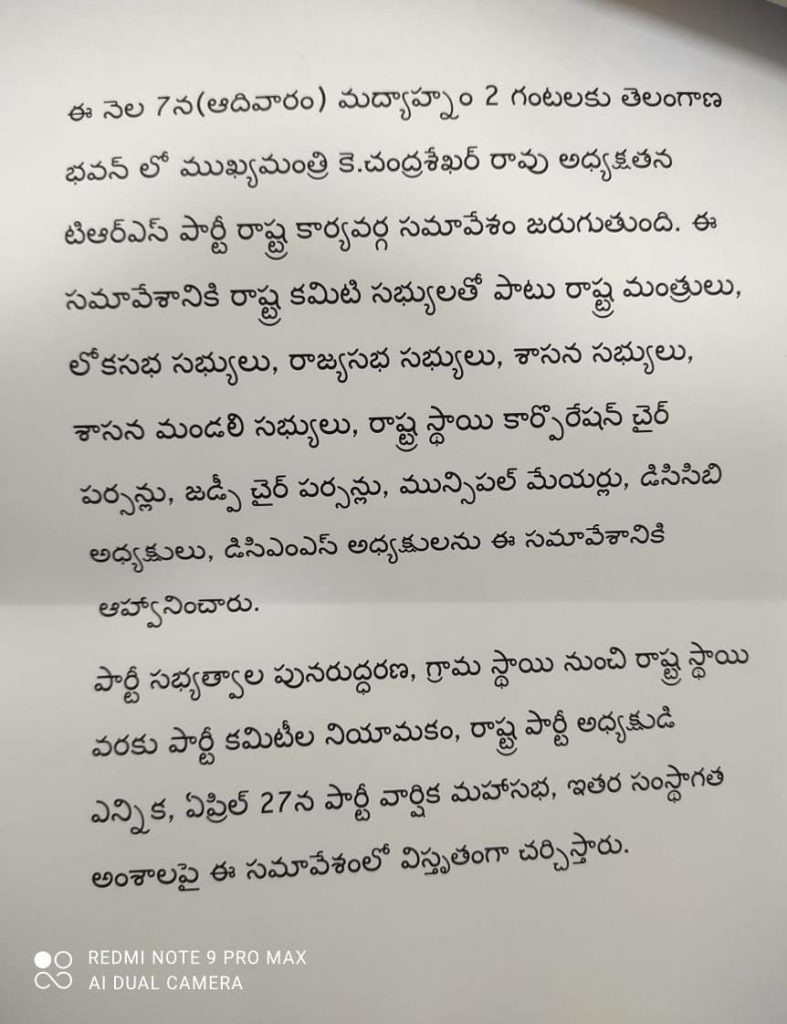 ఈ నెల 7న(ఆదివారం) మద్యాహ్నం 2 గంటలకు తెలంగాణ
భవన్ లో ముఖ్యమంత్రి కె.చంద్రశేఖర్ రావు అధ్యక్షతన
టిఆర్ఎస్ పార్టీ రాష్ట్ర కార్యవర్గ సమావేశం జరుగుతుంది. ఈ
సమావేశానికి రాష్ట్ర కమిటి సభ్యులతో పాటు రాష్ట్ర మంత్రులు,
లోకసభ సభ్యులు, రాజ్యసభ సభ్యులు, శాసన సభ్యులు,
శాసన మండలి సభ్యులు, రాష్ట్ర స్థాయి కార్పొరేషన్ చైర్
పర్సన్లు, జడ్పీ చైర్ పర్సన్లు, మున్సిపల్ మేయర్లు, డిసిసిబి
అధ్యక్షులు, డిసిఎంఎస్ అధ్యక్షులను ఈ సమావేశానికి
ఆహ్వానించారు.
పార్టీ సభ్యత్వాల పునరుద్ధరణ, గ్రామ స్థాయి నుంచి రాష్ట్ర స్థాయి
వరకు పార్టీ కమిటీల నియామకం, రాష్ట్ర పార్టీ అధ్యక్షుడి
ఎన్నిక, ఏప్రిల్ 27న పార్టీ వార్షిక మహాసభ, ఇతర సంస్థాగత
అంశాలపై ఈ సమావేశంలో విస్తృతంగా చర్చిస్తారు.
REDMI NOTE 9 PRO MAX
AI DUAL CAMERA